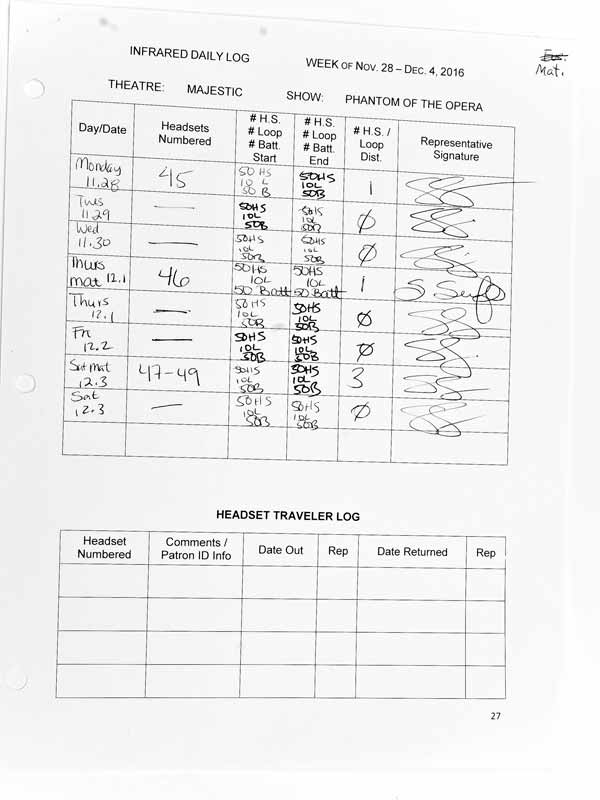 INFRARED DAILY LOG
WEEK OF NOV. 28 – DEC. 4, 2016
Mat.
THEATRE: MAJESTIC SHOW: PHANTOM OF THE OPERA
Day/Date
Headsets
Numbered
# H.S.
# Loop
# Batt.
Start
# H.S.
# Loop
# Batt.
End
# H.S. /
Loop
Dist.
Representative
Signature
Monday
11.28
45
50 HS
10 L
50 B
50HS
10L
50B
1
Tues
11.29
—
50HS
10L
50B
50HS
10L
50B
Ø
Wed
11.30
—
50HS
10L
50B
50HS
10L
50B
Ø
Thurs
mat 12.1
46
50HS
10L
50 Batt
50HS
10L
50 Batt
1
Thurs
12.1
—
50 HS
10L
50B
50HS
10L
50B
Ø
Fri
12.2
—
50HS
10L
50B
50HS
10L
50B
Ø
Sat mat
12.3
47-49
50HS
10L
50B
50HS
10L
50B
3
Sat
12.3
—
50HS
10L
50B
50HS
10L
50B
Ø
HEADSET TRAVELER LOG
Headset
Numbered
Comments /
Patron ID Info
Date Out
Rep
Date Returned
Rep
27